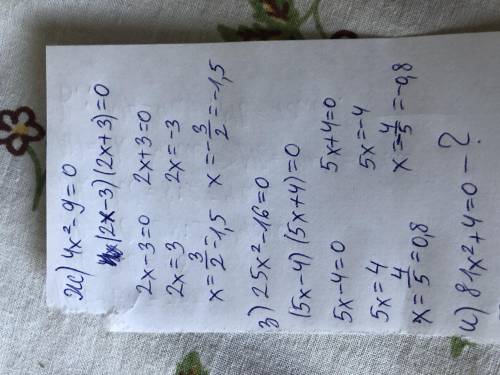 ж) 4x²-9=0
(2x-3)(2x+3)=0
2x-3=0 2x+3=0
2x=3 2x=-3
x=3/2=1,5 x=-3/2=-1,5
з) 25x²-16=0
(5x-4)(5x+4)=0
5x-4=0 5x+4=0
5x=4 5x=-4
x=4/5=0,8 x=-4/5=-0,8
и) 81x²+4=0-?